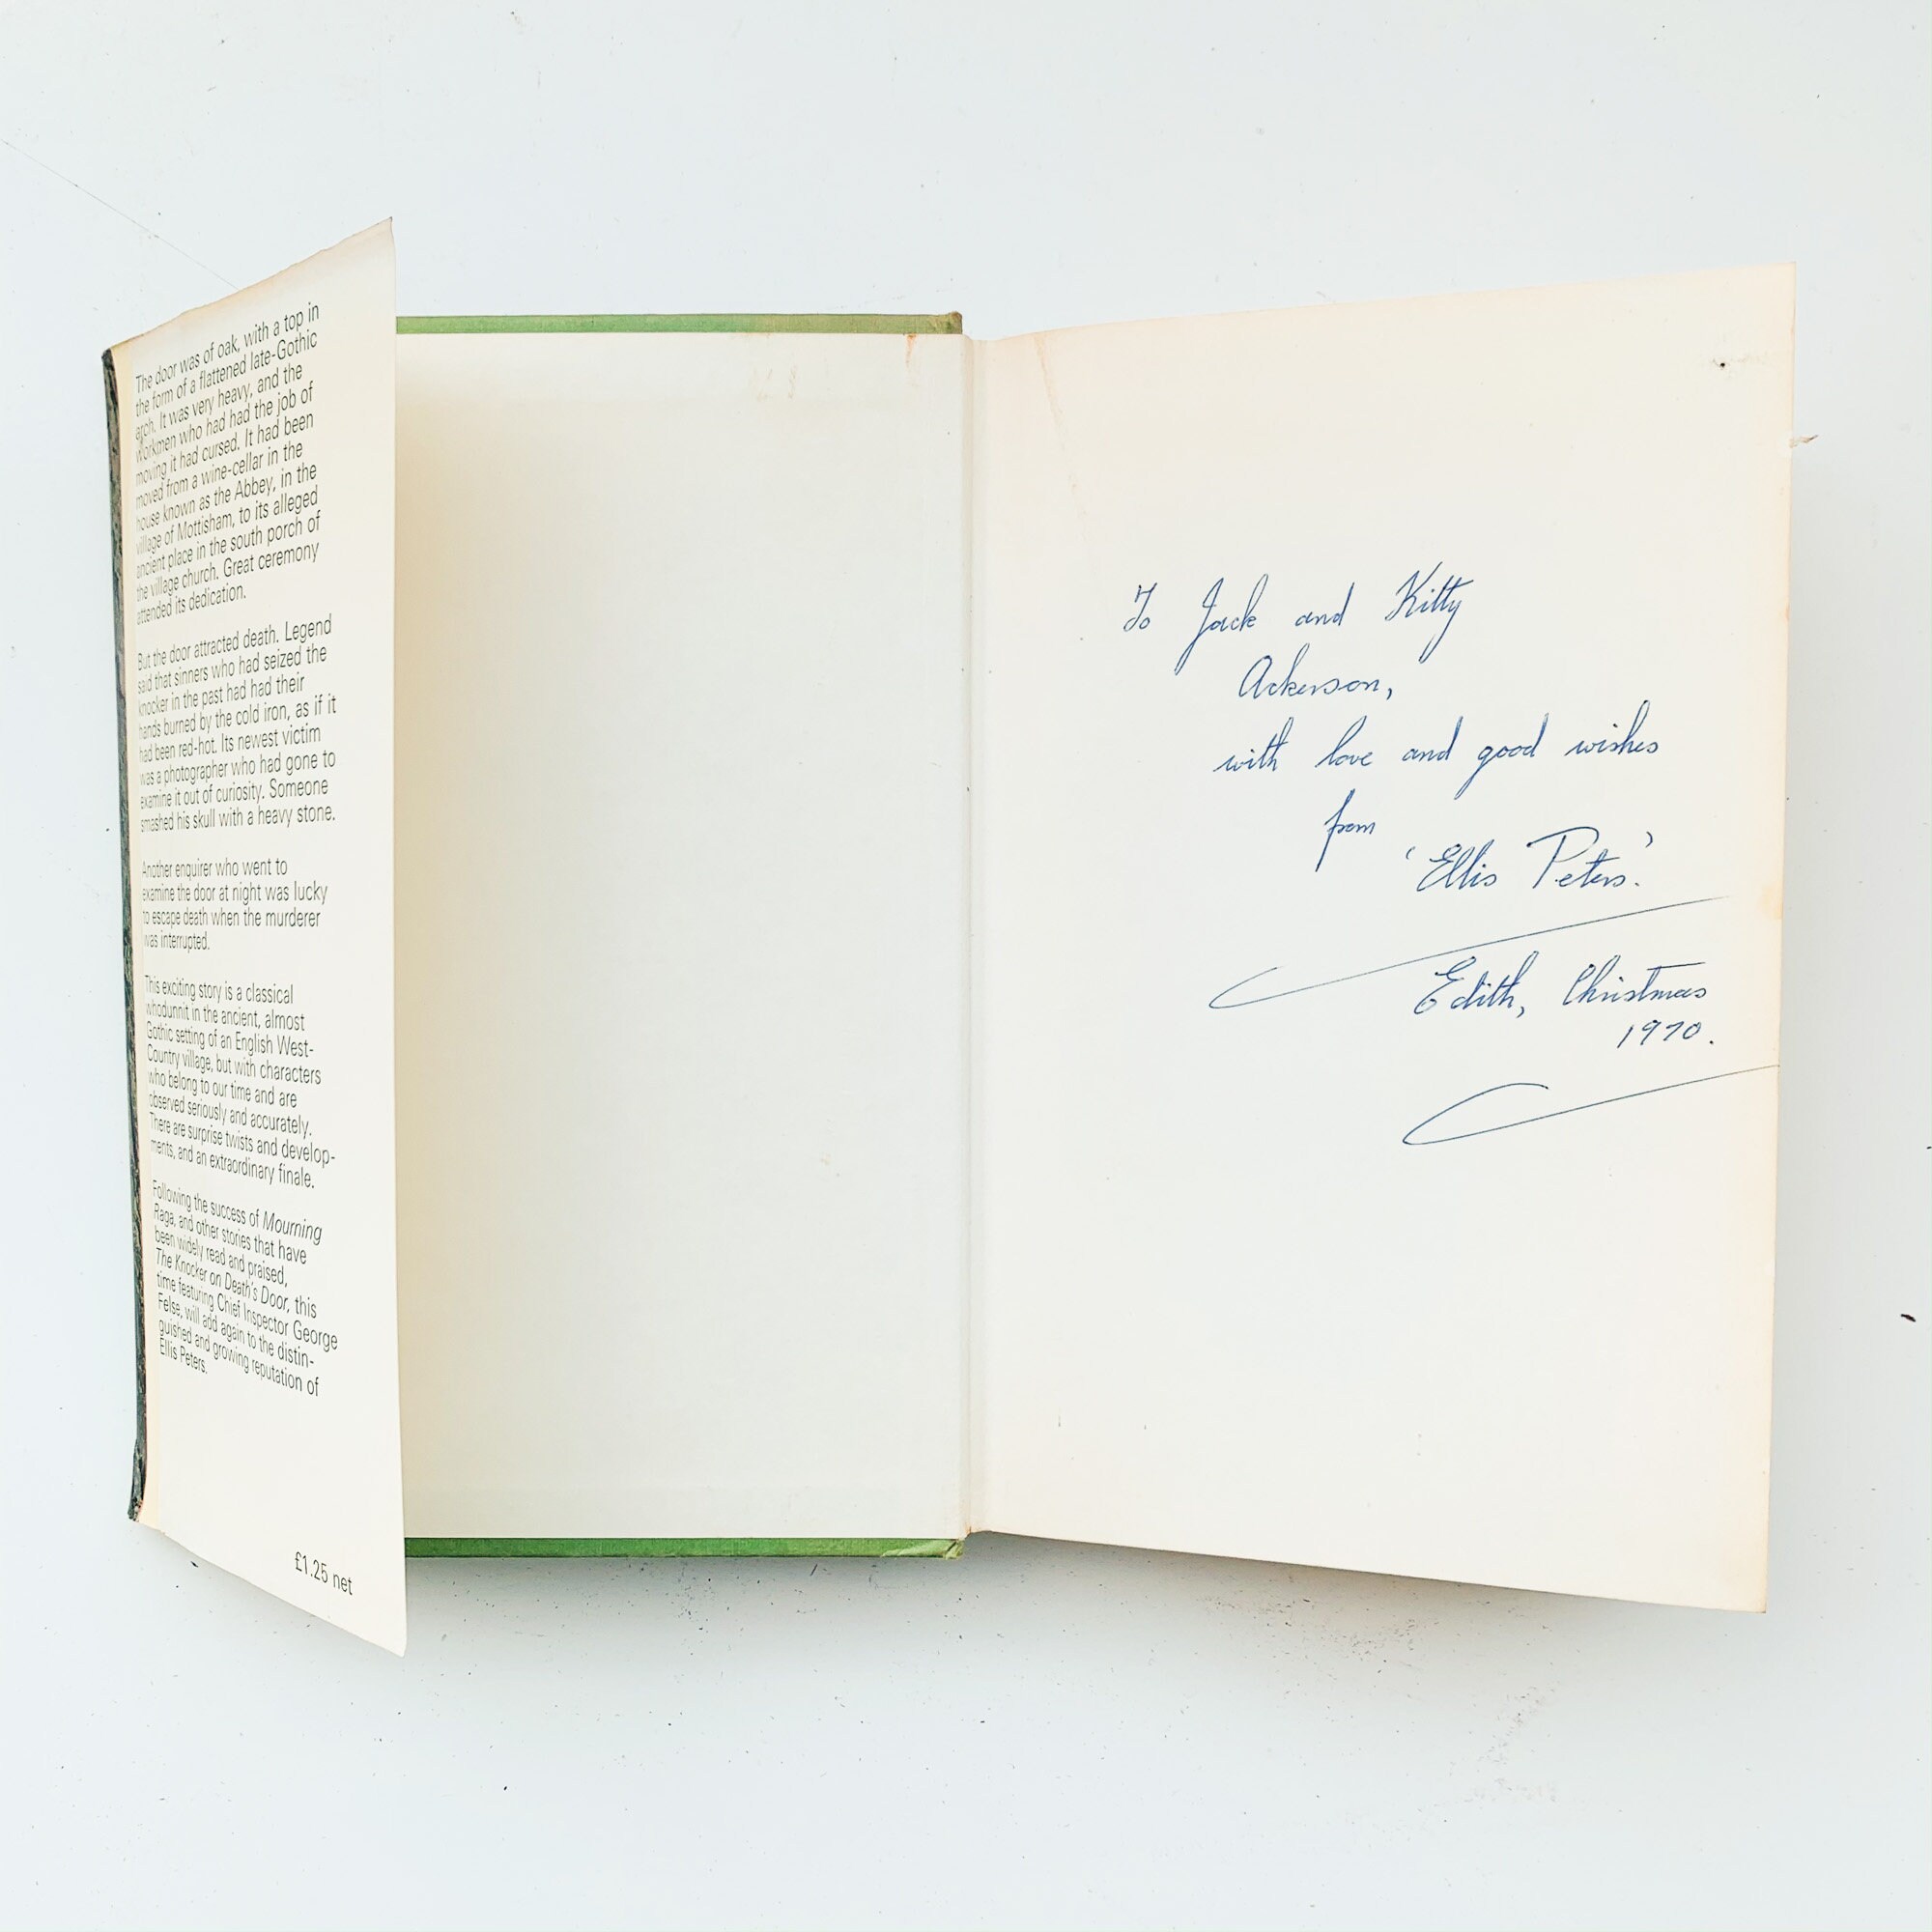 The door was of oak, with a top in
the form of a flattened late-Gothic
arch. It was very heavy, and the
workmen who had had the job of
moving it had cursed. It had been
moved from a wine-cellar in the
house known as the Abbey, in the
village of Mottisham, to its alleged
ancient place in the south porch of
the village church. Great ceremony
attended its dedication.
But the door attracted death. Legend
said that sinners who had seized the
knocker in the past had had their
hands burned by the cold iron, as if it
had been red-hot. Its newest victim
was a photographer who had gone to
examine it out of curiosity. Someone
smashed his skull with a heavy stone.
Another enquirer who went to
examine the door at night was lucky
to escape death when the murderer
was interrupted.
This exciting story is a classical
whodunnit in the ancient, almost
Gothic setting of an English West-
Country village, but with characters
who belong to our time and are
observed seriously and accurately.
There are surprise twists and develop-
ments, and an extraordinary finale.
Following the success of Mourning
Raga, and other stories that have
been widely read and praised,
The Knocker on Death's Door, this
time featuring Chief Inspector George
Felse, will add again to the distin-
guished and growing reputation of
Ellis Peters.
£1.25 net
To Jack and Kitty
Ackerson,
with love and good wishes
from
'Ellis Peters.'
Edith, Christmas
1970.